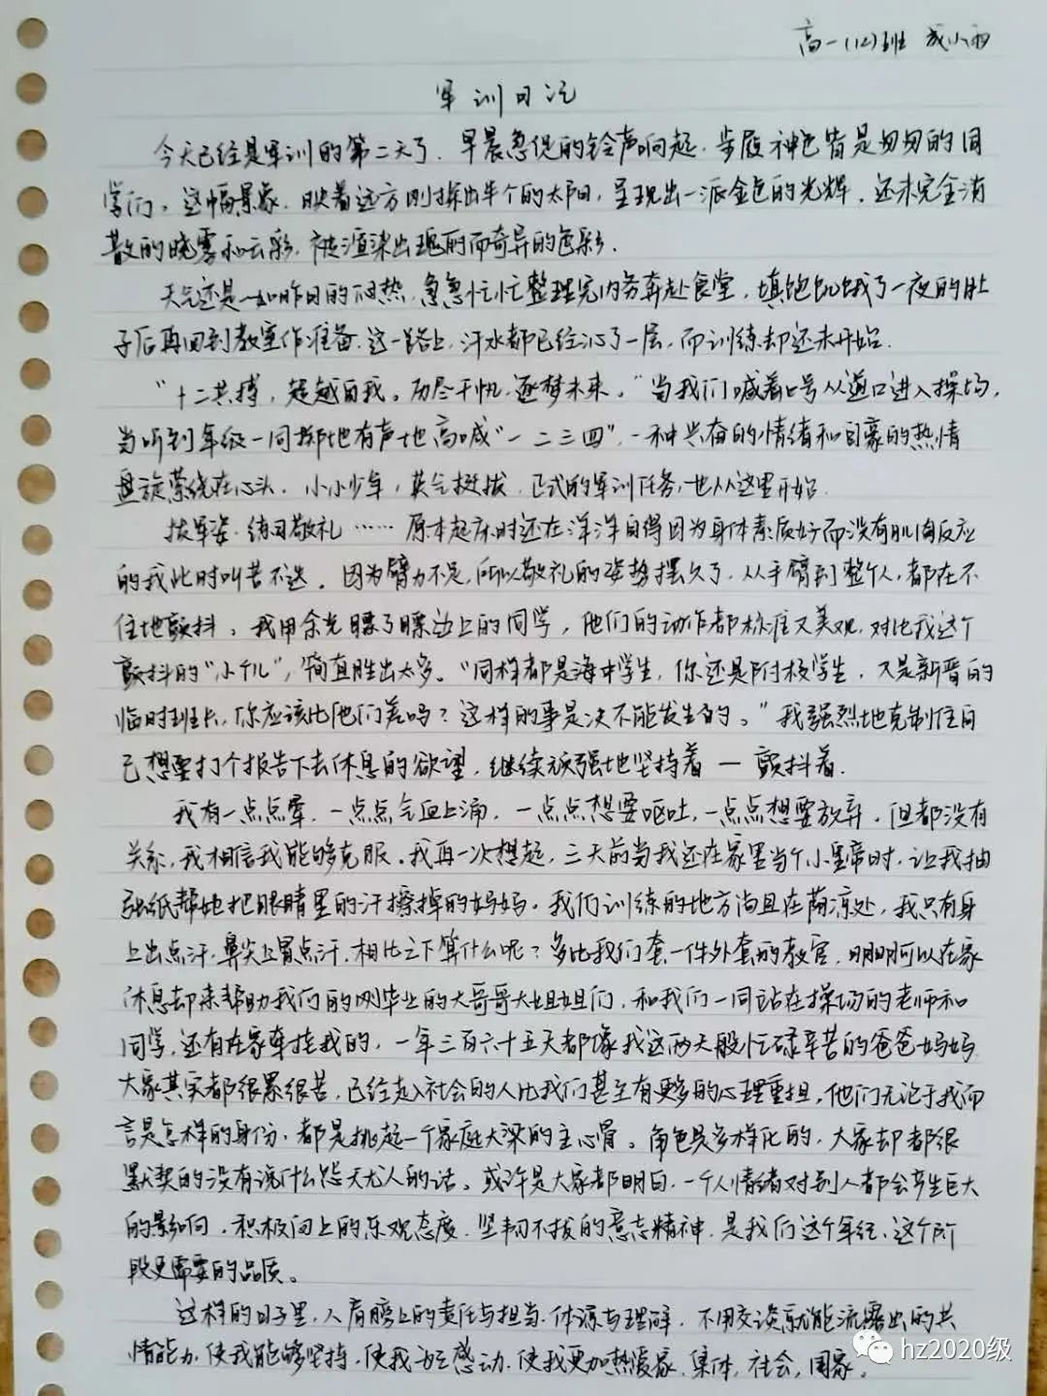 高一(12)班 成小雨
军训日记
今天已经是军训的第二天了。早晨急促的铃声响起,步履神色皆是匆匆的同
学们。这幅景象,映着远方刚探出半个的太阳,呈现出一派金色的光辉。还未完全消
散的晓雾和云彩,被渲染出瑰丽而奇异的色彩。
天气还是一如昨日的闷热,急急忙忙整理完内务奔赴食堂,填饱饥饿了一夜的肚
子后再回到教室作准备。这一路上,汗水都已经沁了一层,而训练却还未开始。
“十二共搏,超越自我。历尽千帆,逐梦未来。”当我们喊着口号从道口进入操场,
当听到年级一同掷地有声地高喊“一二三四”,一种兴奋的情绪和自豪的热情
盘旋萦绕在心头。小小少年,英气挺拔,正式的军训任务,也从这里开始。
拔军姿、练习敬礼……原本起床时还在洋洋自得因为身体素质好而没有肌肉反应
的我此时叫苦不迭。因为臂力不足,所以敬礼的姿势摆久了,从手臂到整个人,都在不
住地颤抖。我用余光瞟了瞟边上的同学,他们的动作都标准又美观,对比我这个
颤抖的“小个儿”,简直胜出太多。“同样都是海中学生,你还是附校学生,又是新晋的
临时班长,你应该比他们差吗?这样的事是决不能发生的。”我强烈地克制住自
己想要打个报告下去休息的欲望,继续顽强地坚持着—颤抖着。
我有一点点晕,一点点气血上涌,一点点想要呕吐,一点点想要放弃。但都没有
关系,我相信我能够克服。我再一次想起,三天前当我还在家里当个小皇帝时,让我抽
张纸帮她把眼睛里的汗擦掉的妈妈。我们训练的地方尚且在荫凉处,我只有身
上出点汗,鼻尖上冒点汗,相比之下算什么呢?多比我们套一件外套的教官,明明可以在家
休息却来帮助我们的刚毕业的大哥哥大姐姐们,和我们一同站在操场的老师和
同学,还有在家牵挂我的,一年三百六十五天都像我这两天般忙碌辛苦的爸爸妈妈
大家其实都很累很苦,已经走入社会的人比我们甚至有更多的心理重担,他们无论于我而
言是怎样的身份,都是挑起一个家庭大梁的主心骨。角色是多样化的,大家却都很
默契的没有说什么怨天尤人的话。或许是大家都明白,一个人情绪对别人都会产生巨大
的影响,积极向上的乐观态度,坚韧不拔的意志精神,是我们这个年纪、这个阶
段更需要的品质。
这样的日子里,人肩膀上的责任与担当,体谅与理解,不用交谈就能流露出的共
情能力,使我能够坚持,使我好感动,使我更加热爱家、集体、社会、国家。
hz2020级